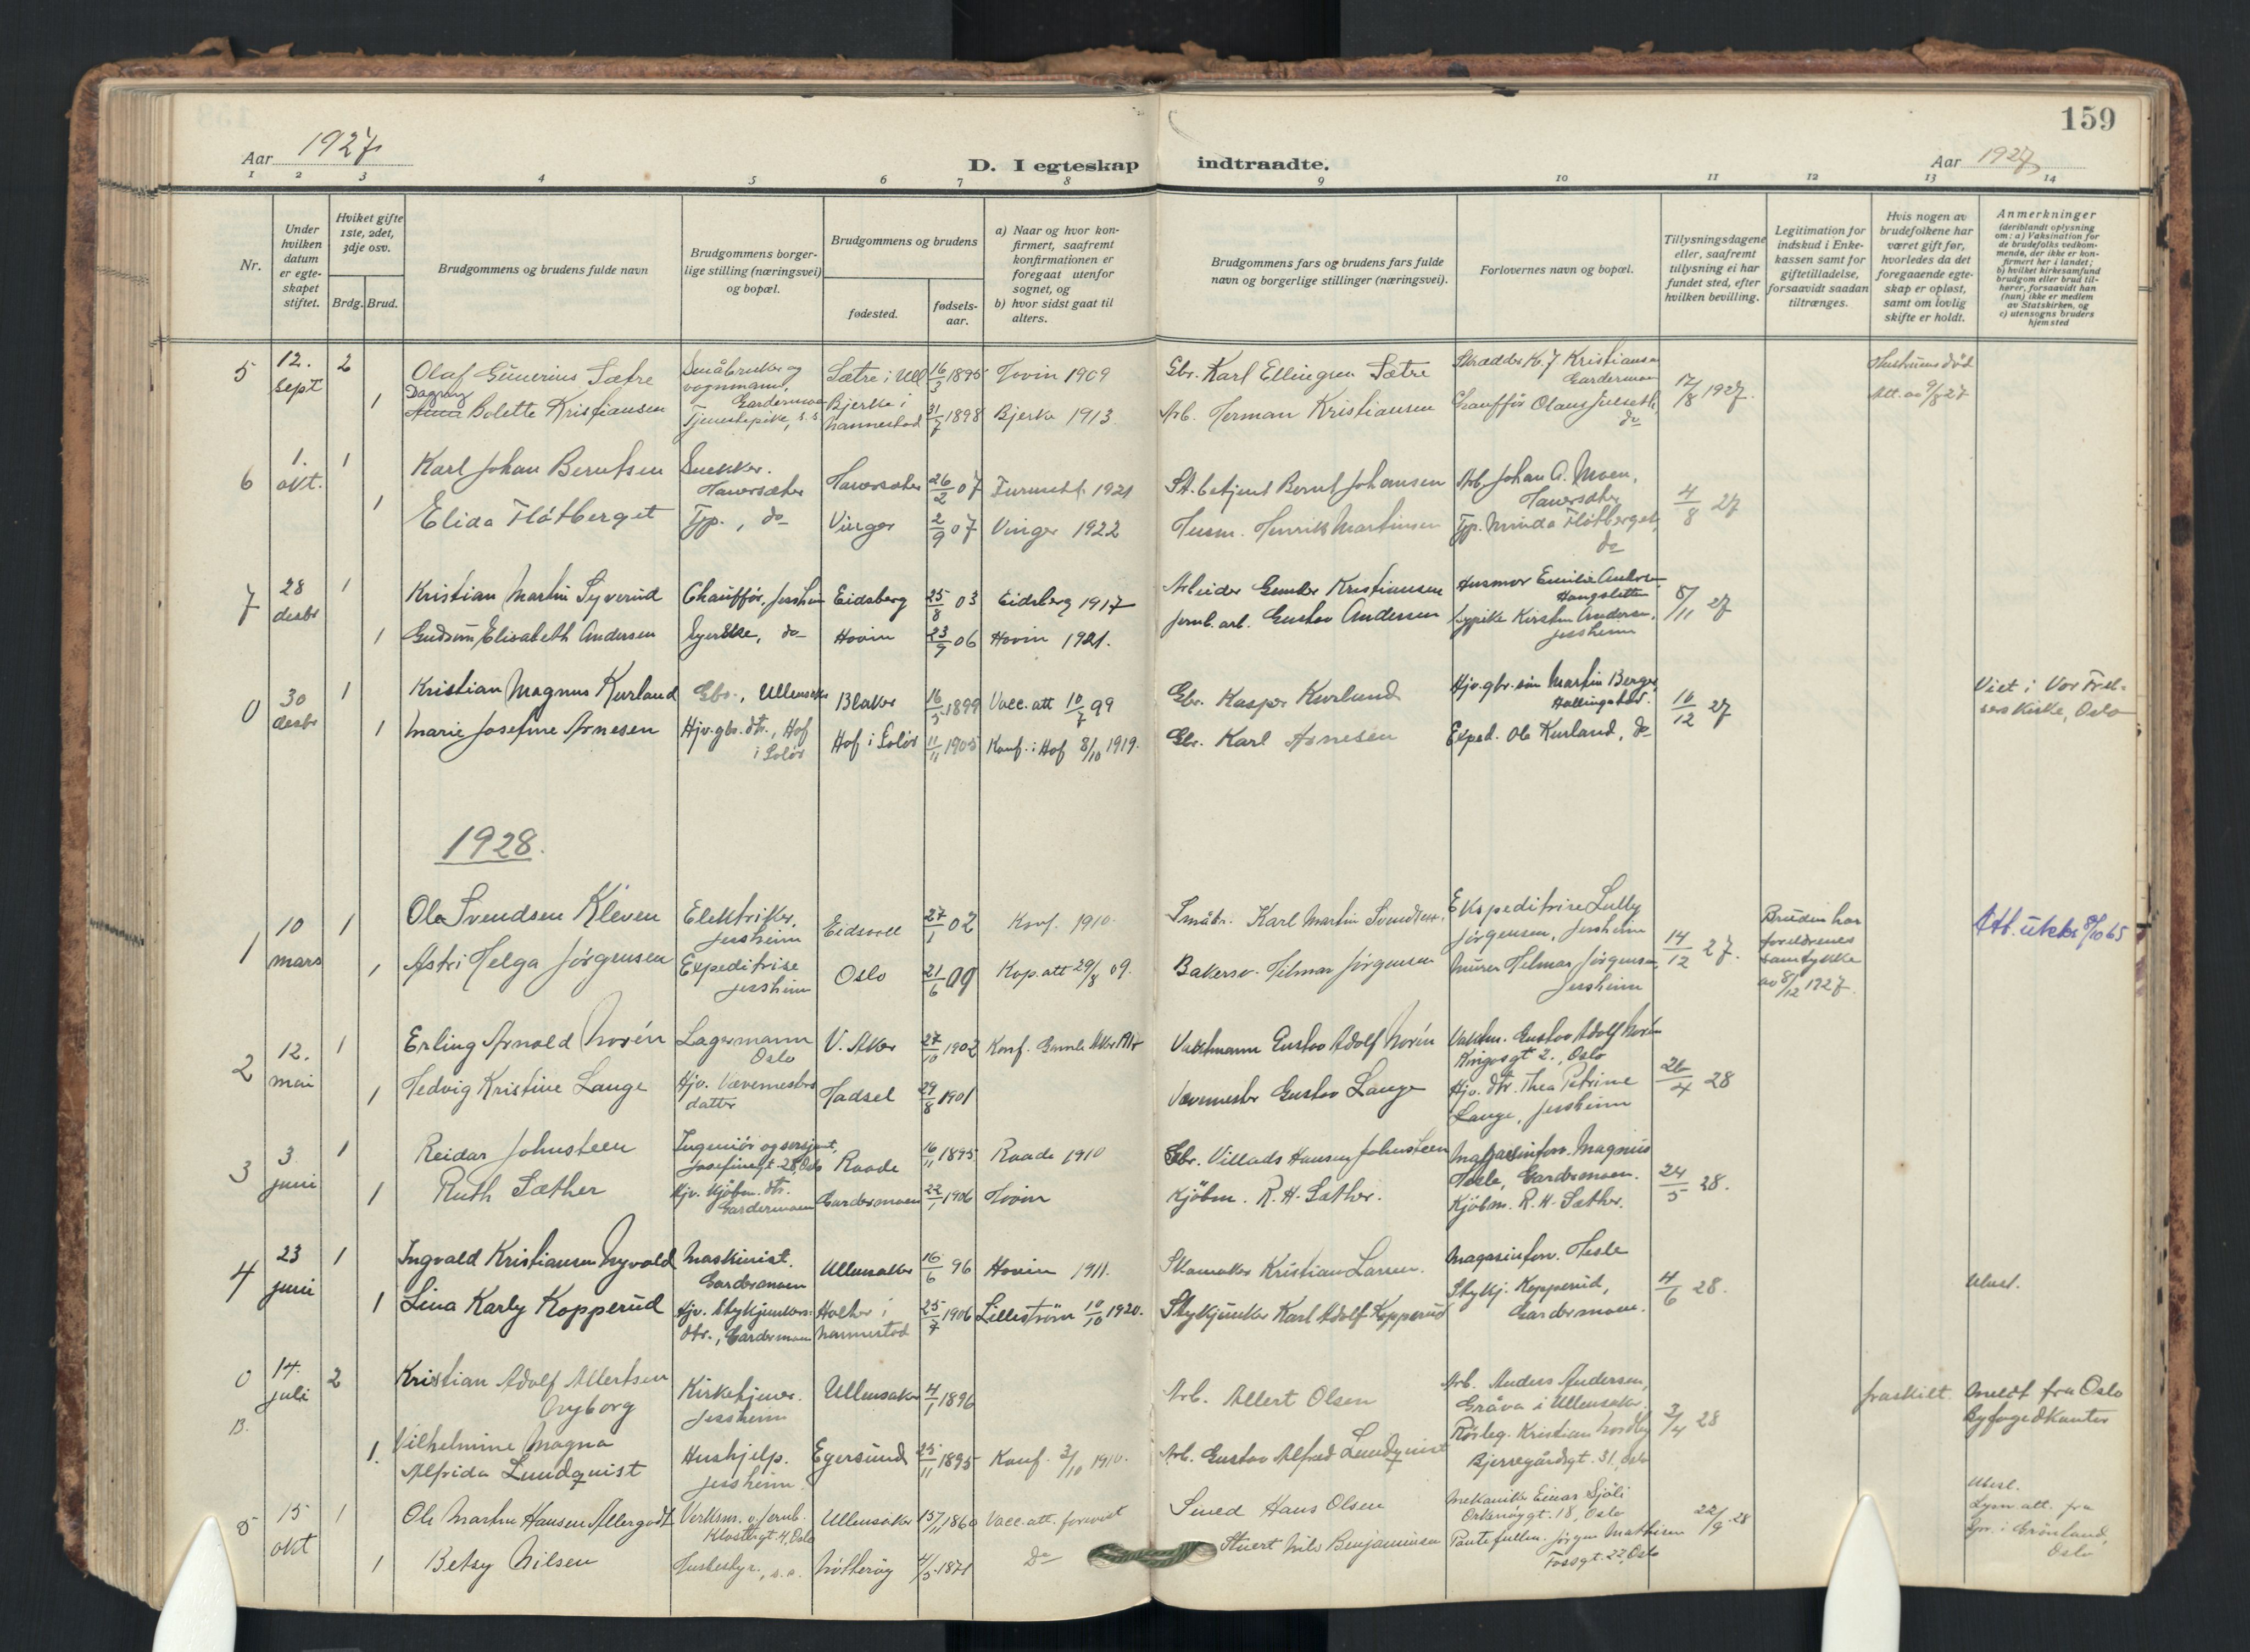 159
Aar 1927
D. I egteskap indtraadte.
Aar 1927
1 2 3 4 5 6 7 8 9 10 11 12 13 14
Nr.
Under hvilken datum er egteskapet stiftet.
Hviket gifte 1ste, 2det, 3dje osv.
Brdg. Brud.
Brudgommens og brudens fulde navn
Brudgommens borgerlige stilling (næringsvei) og bopæl.
Brudgommens og brudens
fødested.
fødselsaar.
a) Naar og hvor konfirmert, saafremt konfirmationen er foregaat utenfor sognet, og
b) hvor sidst gaat til alters.
Brudgommens fars og brudens fars fulde navn og borgerlige stillinger (næringsvei).
Forlovernes navn og bopæl.
Tillysningsdagene eller, saafremt tillysning ei har fundet sted, efter hvilken bevilling.
Legitimation for indskud i Enkekassen samt for giftetilladelse, forsaavidt saadan tiltrænges.
Hvis nogen av brudefolkene har været gift før, hvorledes da det foregaaende egteskap er opløst, samt om lovlig skifte er holdt.
Anmerkninger (deriblandt oplysning om: a) Vaksination for de brudefolks vedkommende, der ikke er konfirmert her i landet; b) hvilket kirkesamfund brudgom eller brud tilhører, forsaavidt han (hun) ikke er medlem av Statskirken, og c) utensogns bruders hjemsted
5 12. sept 2 Olaf Gunerius Sætre Småbruker og vognmand, Gardermoen Sætre i Ull 16/5 1895 Hovin 1909 Gbr. Karl Ellingsen Sætre Skrædder K. J Kristiansen Gardermoen 17/8 1927. Hustruens død Att. av 9/8 27
1 Dagny Bolette Kristiansen Tjenestepike, s.s. Bjerke i Nannestad 31/7 1898 Bjerke 1913 Arb. Herman Kristiansen Chauffør Olaus Julseth, do
6 1. okt. 1 Karl Johan Berntsen Snekker. Hauersæter Hauersæter 26/2 07 Furuset k. 1921 St. betjent Bernt Johansen Arb. Johan A. Moen, Hauersæter 4/8 27
1 Elida Flåtberget Tjp., do Vinger 2/9 07 Vinger 1922 Husm. Henrik Martinsen Tjp. Minda Flåtberget, do
7 28 desbr 1 Kristian Martin Syverud Chauffør, Jessheim Eidsberg 25/8 03 Eidsberg 1917 Arbeider Gunder Kristiansen Husmor Emilie Andrs. Haugsletten 8/11 27
1 Gudrun Elisabeth Andersen Syerske, do Hovin 23/9 06 Hovin 1921. Jernb. arb. Gustav Andersen Sypike Kirsten Andersen, Jessheim
0 30 desbr 1 Kristian Magnus Kurland Gbr., Ullensaker Blaker 16/5 1899 Vacc. att 10/7 99 Gbr. Kasper Kurland Hjv. gbr. søn Martin Berger, 16/12 27 Viet i Vor Frelsers Kirke, Oslo
1 Marie Josefine Arnesen Hjv. gbr. dtr., Hof i Solør Hof i Solør 11/11 1905 Konf. i Hof 8/10 1919. Gbr. Karl Arnesen Exped. Ole Kurland, do
1928.
1 10 mars 1 Ole Svendsen Kleven Elektriker, Jessheim Eidsvoll 27/1 02 Konf. 1910. Småbr. Karl Martin Svendsen. Ekspeditrise Lully Jørgensen, Jessheim 14/12 27. Bruden har foreldrenes samtykke av 8/12 1927. Att. utstedt 8/10 65
1 Astri Helga Jørgensen Expeditrise Jessheim Oslo 21/6 09 Kop. att 29/8 09. Bakersv. Hilmar Jørgensen Murer Hilmar Jørgensen, Jessheim
2 12. mai 1 Erling Arnold Norén Lagermann Oslo V. Aker 27/10 1902 Konf. Gamle Aker Vaktmann Gustav Adolf Norén Vaktm. Gustav Adolf Norén Kingosgt 2., Oslo 26/4 28
1 Hedvig Kristine Lange Hjv. Vævemesters datter Hadsel 29/8 1901 Vævemester Gustav Lange Hjv. dtr. Thea Petrine Lange, Jessheim
3 3 juni 1 Reidar Johnsteen Ingeniør og sersjant, Josefinegt 28, Oslo Raade 16/11 1895 Raade 1910 Gbr. Villads Hansen Johnsteen Magasinforv. Magnus Hesle, Gardermoen. 24/5 28.
1 Ruth Sæther Hjv. Kjøbm. dtr. Gardermoen Gardermoen 22/1 1906 Hovin Kjøbm. R. H. Sæther. Kjøbm. R. H. Sæther.
4 23 juni 1 Ingvald Kristiansen Nyvold Maskinist. Gardermoen Ullensaker 16/6 96 Hovin 1911. Skomaker Kristian Larsen. Magasinforv. Hesle 4/6 28.
1 Lina Karly Kopperud Hjv. Skykjunkers dtr., Gardermoen Holter i Nannestad 25/7 1906 Lillestrøm 10/10 1920. Skykjunker Karl Adolf Kopperud Skykj. Kopperud, Gardermoen.
0 B. 14. juli 2 Kristian Adolf Allertsen Nyborg Kirketjener. Jessheim Ullensaker 4/1 1896 Arb. Allert Olsen Arb. Anders Andersen, Gråva i Ullensaker. 3/4 28 fraskilt. Meldt fra Oslo Byfogedkontor
1. Vilhelmine Magna Alfrida Lundquist Hushjelp. Jessheim. Egersund 25/11 1895 Konf. 3/10 1910. Arb. Gustav Alfred Lundquist Rørleg. Kristian Nordby Bjerregårdsgt. 31, Oslo
5 15 okt 1 Ole Martin Hansen Allergodt Verksm. v. Jernb. Klostergt. 4, Oslo Ullensaker 15/11 1860 Vacc. att. forevist Smed Hans Olsen Mekaniker Einar Sjøli Orknøygt. 18, Oslo 22/9 28 Lysn. att. fra Spr. i Grønland, Oslo
1 Betsy Nilsen Husbestyr., s.s. Nøtterøy 4/5 1871 Do Stuert Nils Benjaminsen Pantefullm. Jørgen Mathisen Fossgt. 22, Oslo